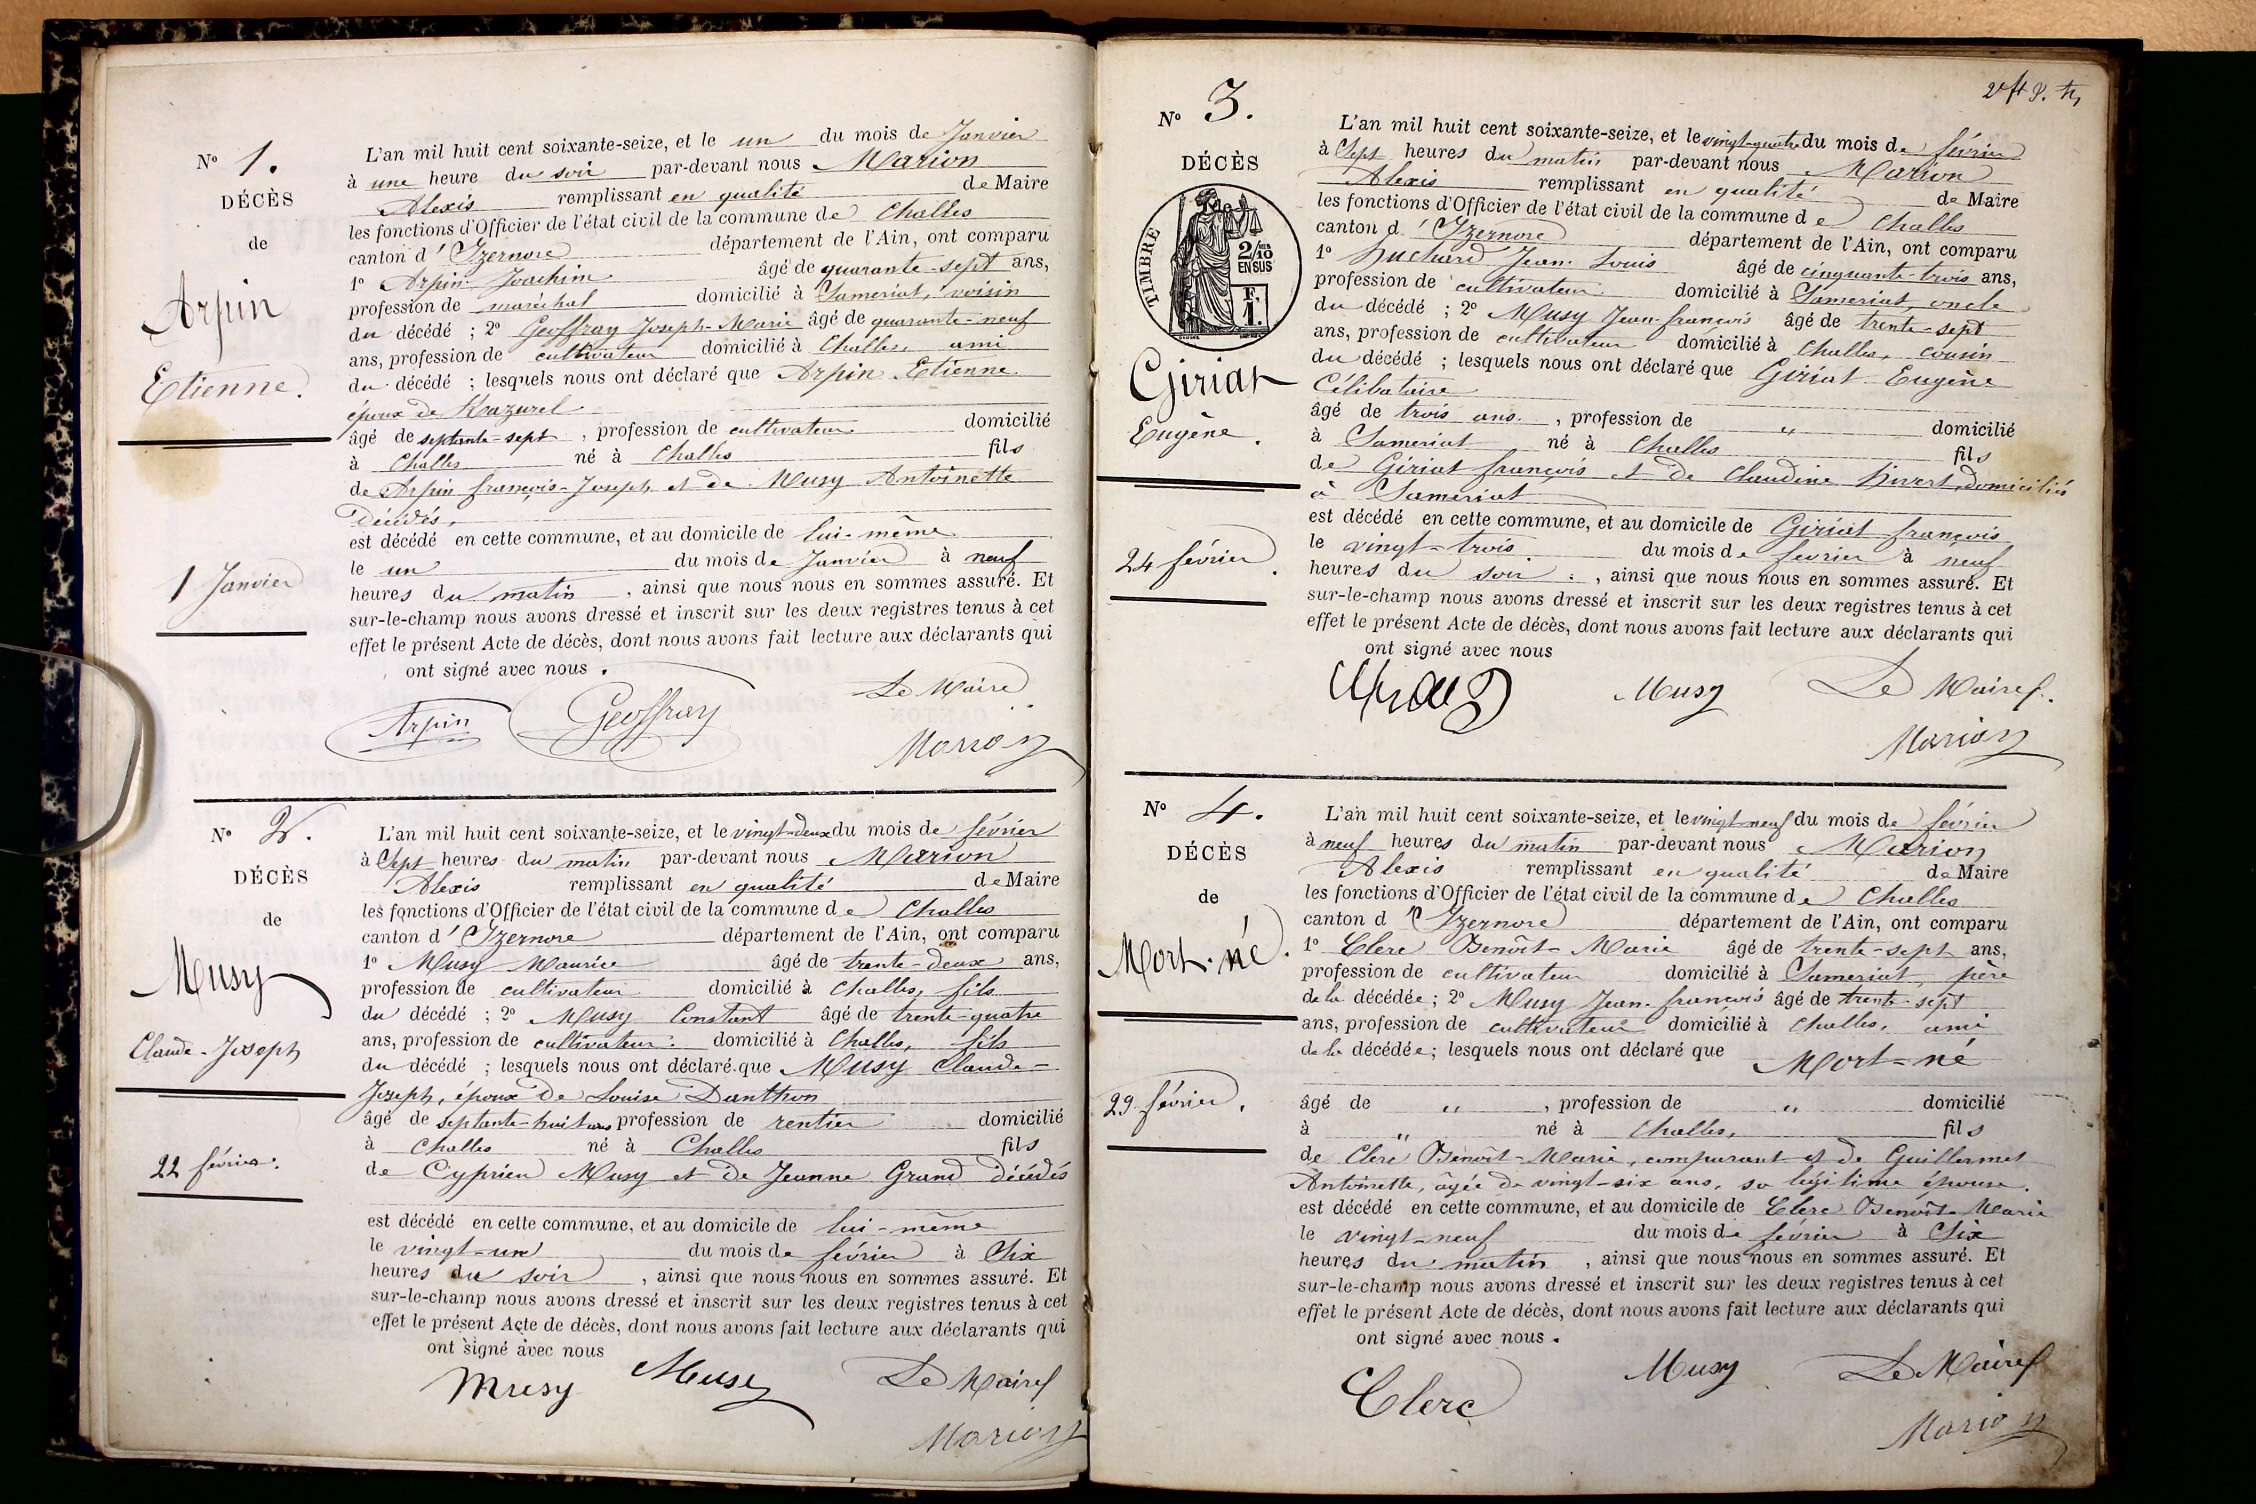 N° 1.
DÉCÈS
de
Arpin
Etienne.
1 Janvier
L'an mil huit cent soixante-seize, et le un du mois de Janvier
à une heure du soir par-devant nous Marion
Alexis remplissant en qualité de Maire
les fonctions d'Officier de l'état civil de la commune de Challes
canton d' Izernore département de l'Ain, ont comparu
1° Arpin Joachim âgé de quarante-sept ans,
profession de maréchal domicilié à Samériat, voisin
du décédé ; 2° Geoffray Joseph-Marie âgé de quarante-neuf
ans, profession de cultivateur domicilié à Challes, ami
du décédé ; lesquels nous ont déclaré que Arpin Etienne
époux de
âgé de septante-sept , profession de cultivateur domicilié
à Challes né à Challes fils
de Arpin françois-Joseph et de Musy Antoinette
décédés,
est décédé en cette commune, et au domicile de lui-même
le un du mois de Janvier à neuf
heures du matin , ainsi que nous nous en sommes assuré. Et
sur-le-champ nous avons dressé et inscrit sur les deux registres tenus à cet
effet le présent Acte de décès, dont nous avons fait lecture aux déclarants qui
ont signé avec nous .
Le Maire
Arpin Geoffray
Marion
N° 2.
DÉCÈS
de
Musy
Claude-Joseph
22 février.
L'an mil huit cent soixante-seize, et le vingt-deux du mois de février
à Sept heures du matin par-devant nous Marion
Alexis remplissant en qualité de Maire
les fonctions d'Officier de l'état civil de la commune de Challes
canton d' Izernore département de l'Ain, ont comparu
1° Musy Maurice âgé de trente-deux ans,
profession de cultivateur domicilié à Challes, fils
du décédé ; 2° Musy Constant âgé de trente-quatre
ans, profession de cultivateur domicilié à Challes, fils
du décédé ; lesquels nous ont déclaré que Musy Claude-
Joseph, époux de Louise Danthon
âgé de septante-huit ans profession de rentier domicilié
à Challes né à Challes fils
de Cyprien Musy et de Jeanne Grand décédés
est décédé en cette commune, et au domicile de lui-même
le vingt-un du mois de février à Six
heures du soir , ainsi que nous nous en sommes assuré. Et
sur-le-champ nous avons dressé et inscrit sur les deux registres tenus à cet
effet le présent Acte de décès, dont nous avons fait lecture aux déclarants qui
ont signé avec nous
Musy Musy Le Maire
Marion
N° 3.
DÉCÈS
de
TIMBRE
2/10 EN SUS
F. 1.
Giriat
Eugène.
24 février.
L'an mil huit cent soixante-seize, et le vingt-quatre du mois de février
à Sept heures du matin par-devant nous Marion
Alexis remplissant en qualité de Maire
les fonctions d'Officier de l'état civil de la commune de Challes
canton d' Izernore département de l'Ain, ont comparu
1° Jean Louis âgé de cinquante-trois ans,
profession de cultivateur domicilié à Samériat, oncle
du décédé ; 2° Musy Jean-françois âgé de trente-sept
ans, profession de cultivateur domicilié à Challes, cousin
du décédé ; lesquels nous ont déclaré que Giriat Eugène
Célibataire
âgé de trois ans , profession de " domicilié
à Samériat né à Challes fils
de Giriat françois et de Claudine Hivert, domiciliés
à Samériat
est décédé en cette commune, et au domicile de Giriat françois
le vingt-trois du mois de fevrier à neuf
heures du soir , ainsi que nous nous en sommes assuré. Et
sur-le-champ nous avons dressé et inscrit sur les deux registres tenus à cet
effet le présent Acte de décès, dont nous avons fait lecture aux déclarants qui
ont signé avec nous
Musy Le Maire
Marion
N° 4.
DÉCÈS
de
Mort-né.
29 février.
L'an mil huit cent soixante-seize, et le vingt-neuf du mois de février
à neuf heures du matin par-devant nous Marion
Alexis remplissant en qualité de Maire
les fonctions d'Officier de l'état civil de la commune de Challes
canton d' Izernore département de l'Ain, ont comparu
1° Clerc Benoît-Marie âgé de trente-sept ans,
profession de cultivateur domicilié à Samériat, père
de la décédée ; 2° Musy Jean-françois âgé de trente-sept
ans, profession de cultivateur domicilié à Challes, ami
de la décédée ; lesquels nous ont déclaré que Mort-né
âgé de " , profession de " domicilié
à " né à Challes, fils
de Clerc Benoît-Marie, comparant et de Guillermet
Antoinette, âgée de vingt-six ans, sa légitime épouse.
est décédé en cette commune, et au domicile de Clerc Benoît-Marie
le vingt-neuf du mois de février à Six
heures du matin , ainsi que nous nous en sommes assuré. Et
sur-le-champ nous avons dressé et inscrit sur les deux registres tenus à cet
effet le présent Acte de décès, dont nous avons fait lecture aux déclarants qui
ont signé avec nous .
Clerc Musy Le Maire
Marion